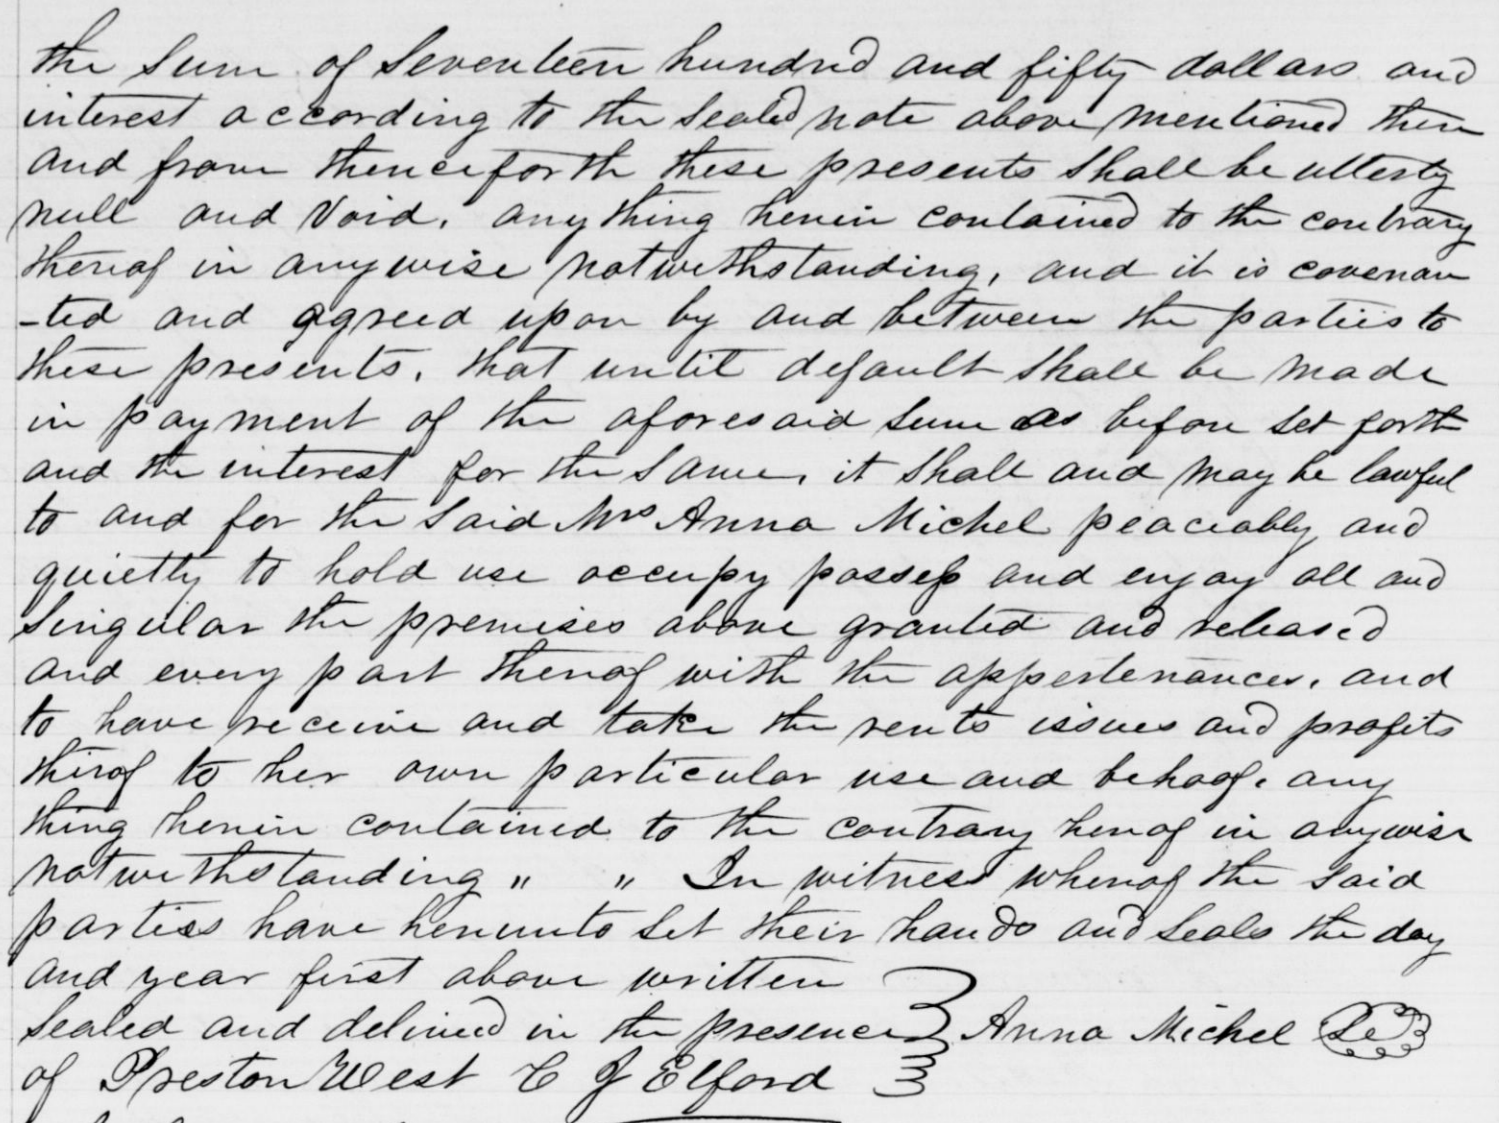 the sum of Seventeen hundred and fifty dollars and
interest according to the sealed note above mentioned then
and from thenceforth these presents shall be utterly
null and void, any thing herein contained to the contrary
thereof in anywise notwithstanding, and it is covenan
-ted and agreed upon by and between the parties to
these presents, that until default shall be made
in payment of the aforesaid sum as before set forth
and the interest for the same, it shall and may be lawful
to and for the said Mrs Anna Michel peaceably and
quietly to hold use occupy possess and enjoy all and
Singular the premises above granted and released
and every part thereof with the appertenances, and
to have receive and take the rents issues and profits
thereof to her own particular use and behoof, any
thing herein contained to the contrary hereof in anywise
notwithstanding " " In witness whereof the said
parties have hereunto set their hands and seals the day
and year first above written
Sealed and delivered in the presence Anna Michel
of Preston West C J Elford